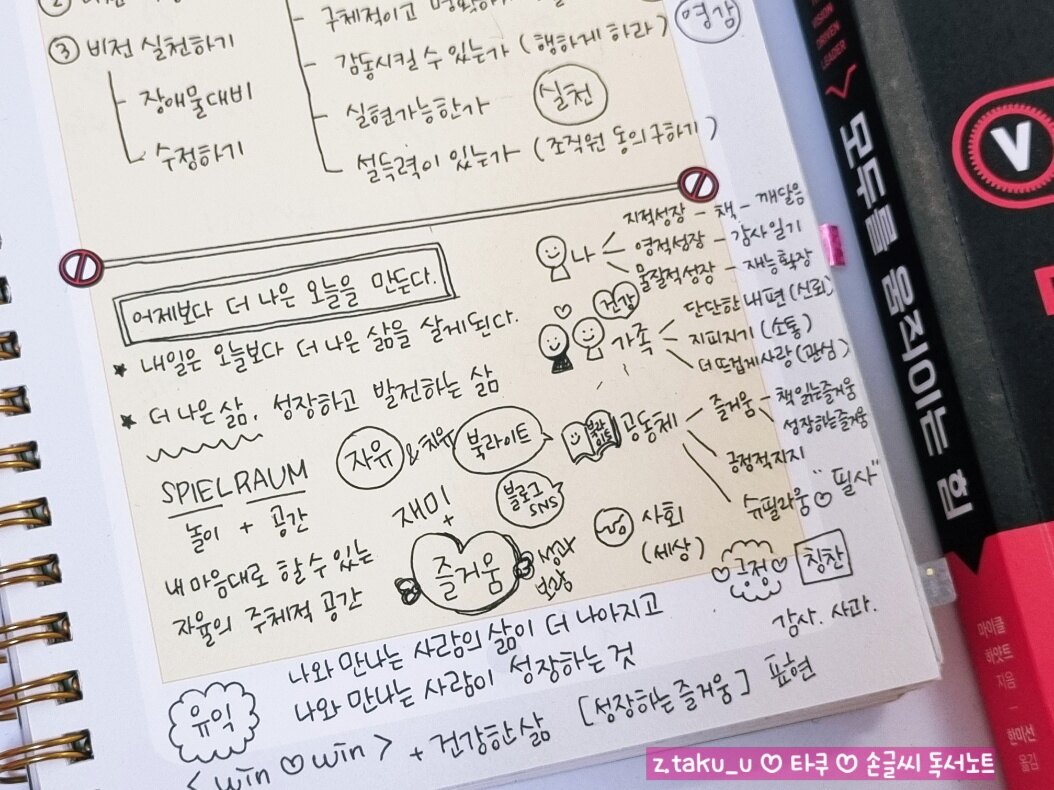 ③ 비전 실천하기
장애물대비
수정하기
구체적이고
감동시킬 수 있는가 (행하게 하라)
영감
실현가능한가
실천
설득력이 있는가 (조직원 동의 구하기)
어제보다 더 나은 오늘을 만든다.
★ 내일은 오늘보다 더 나은 삶을 살게된다.
★ 더 나은 삶, 성장하고 발전하는 삶
SPIELRAUM
놀이 + 공간
내 마음대로 할 수 있는
자율의 주체적 공간
자유 & 치유
북라이트
재미
+
즐거움
블로그
SNS
성과
보람
나
지적성장 - 책 - 깨달음
영적성장 - 감사일기
물질적성장 - 재능확장
건강
가족
단단한 내편 (신뢰)
지피지기 (소통)
더 뜨겁게 사랑 (관심)
북라이트
공동체
즐거움 - 책 읽는 즐거움
성장하는 즐거움
긍정적지지
슈필라움♡ "필사"
사회
(세상)
♡긍정♡
칭찬
감사. 사과.
나와 만나는 사람의 삶이 더 나아지고
나와 만나는 사람이 성장하는 것
유익
[성장하는 즐거움] 표현
<win ♡ win> + 건강한 삶
VISION
DRIVEN
LEADER
모두를 움직이는 힘
V
마이클
하얏트
지음
한미선
옮김
z.taku_u ♡ 타쿠 ♡ 손글씨 독서노트